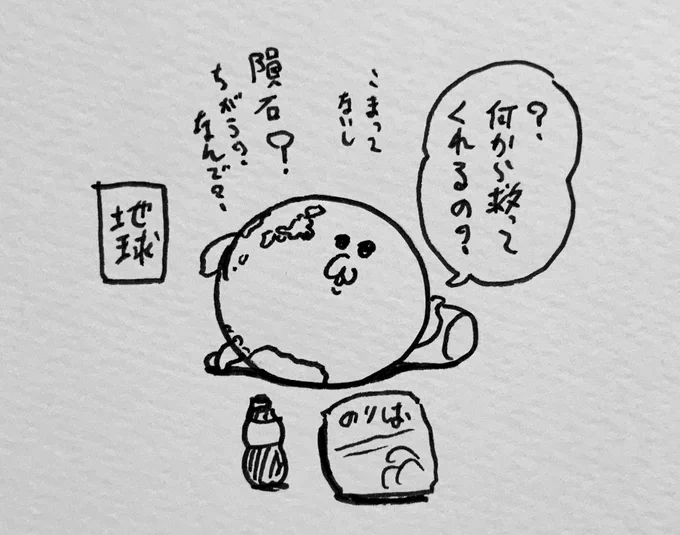 ？
何から救って
くれるの？
こまって
ないし
隕石？
ちがうの？
なんで？
地球
のりしお